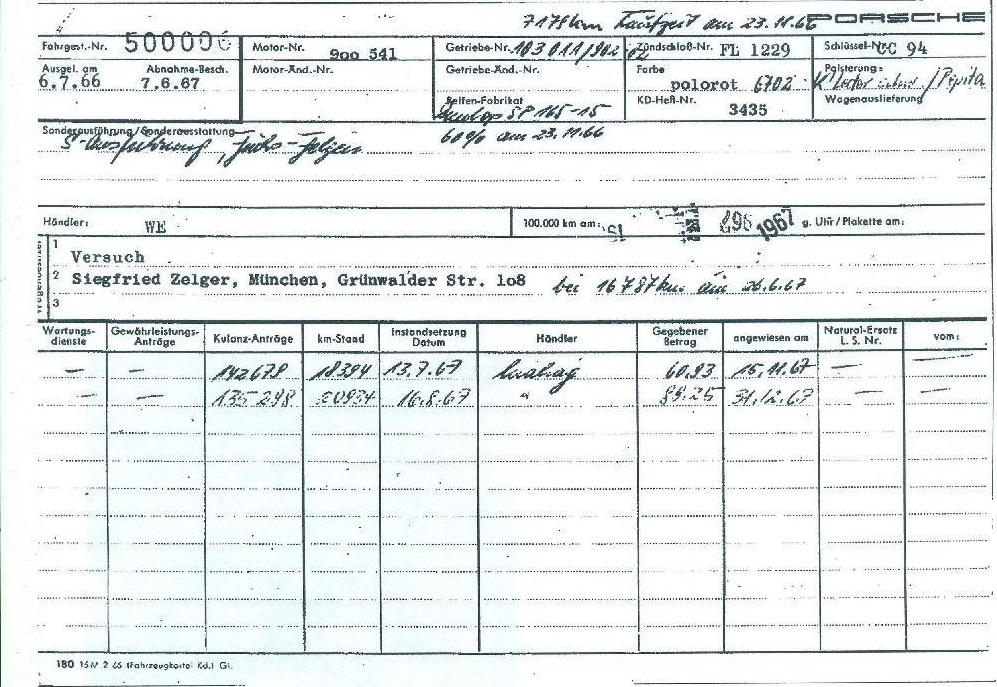 7179 km am 23.11.66 PORSCHE
Fahrgest.-Nr. 500006 Motor-Nr. 900 541 Getriebe-Nr. 103011/902 02 Zündschloß-Nr. FL 1229 Schlüssel-Nr. CC 94
Ausgel. am Abnahme-Besch. Motor-Änd.-Nr. Getriebe-Änd.-Nr. Farbe Polsterung:
6.7.66 7.6.67 polorot 6702 /Pepita
Reifen-Fabrikat KD-Heft-Nr. 3435 Wagenauslieferung
Dunlop SP 165-15
Sonderausführung/Sonderausstattung 60% am 23.11.66
S-Ausführung, Fuchs-Felgen
Händler: WE 100.000 km am: 1967 g. Uhr/Plakette am:
Wagenbesitzer
1 Versuch
2 Siegfried Zelger, München, Grünwalder Str. 108 bei 16787km am 26.6.67
3
Wartungs-dienste Gewährleistungs-Anträge Kulanz-Anträge km-Stand Instandsetzung Datum Händler Gegebener Betrag angewiesen am Natural-Ersatz L. S. Nr. vom:
— — 142678 18394 13.7.67 60.93 15.11.67 — —
— — 135298 20934 16.8.67 " 89.25 31.12.67 — —
180 15 IV 2 66 (Fahrzeugkartei Kd.) Gi.